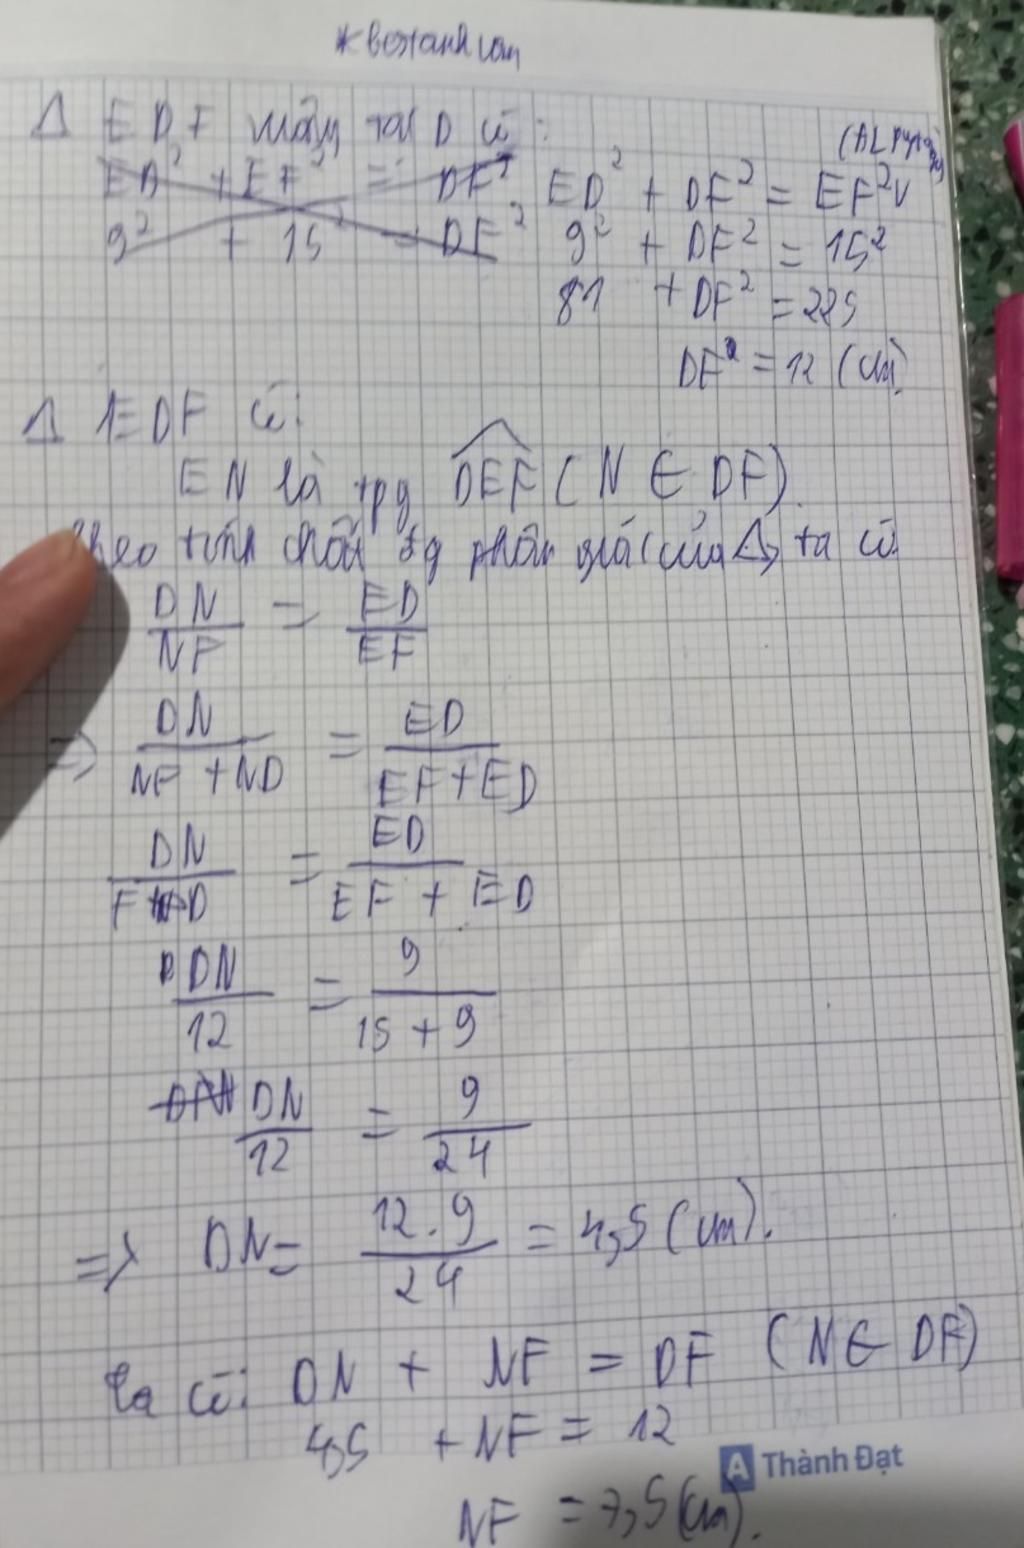 Δ EDF vuông tại D có:
(ĐL Pytago)
ED² + EF² = DF²
9² + 15² = DF²
ED² + DF² = EF²
9² + DF² = 15²
81 + DF² = 225
DF = 12 (cm)
Δ EDF có:
EN là tpg DEF (N ∈ DF).
Theo tính chất đg phân giác của Δ, ta có
DN/NF = ED/EF
=> DN/NF + ND = ED/EF + ED
DN/FD = ED/EF + ED
DN/12 = 9/15 + 9
DN/12 = 9/24
=> DN = 12.9/24 = 4,5 (cm).
Ta có: DN + NF = DF (N ∈ DF)
4,5 + NF = 12
A Thành Đạt
NF = 7,5 (cm).